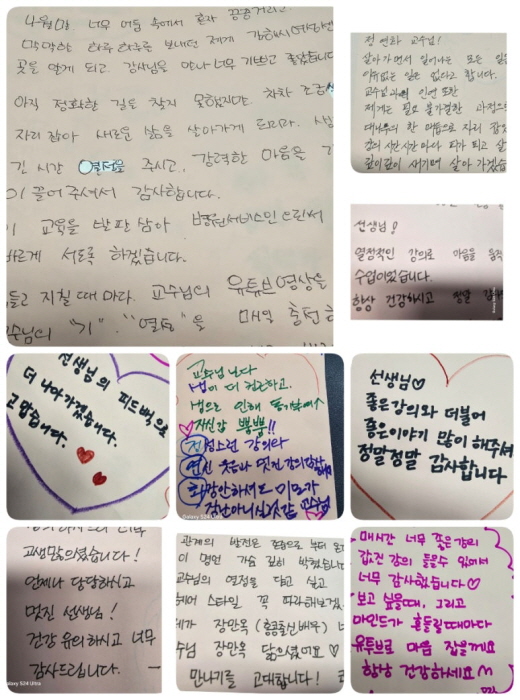 너무 어둠 속에서 혼자 끙끙거리고
막막한 하루하루를 보내던 제게
꽃을 알게 되고 강사님을 만나 너무 기쁘고 좋았습니다
아직 정확한 길을 찾지 못했지만, 차차 조금씩
자리잡아 새로운 삶을 살아가게 되리라.
긴 시간 열정을 주시고, 강력한 마음을
이끌어 주셔서 감사합니다.
교육을 발판 삼아 병원서비스인
바르게 서도록 하겠습니다.
힘들고 지칠 때마다. 교수님의 유튜브 영상을
교수님의 "기". "열정"을 매일 충전
정연화 교수님!
살아가면서 일어나는 모든 일
이유없는 일은 없다고 합니다.
교수님과의 인연 또한
제게는 필요 불가결한 과정으로
대나무의 한 마듬으로 자리 잡았
강의 시간시간마다 피가 되고 살
깊이깊이 새기며 살아가겠습
선생님!
열정적인 강의로 마음을 움직
수업이었습니다.
항상 건강하시고 정말 감사
선생님의 피드백으로
더 나아가겠습니다.
고맙습니다.
교수님 덕에
삶이 더 윤택하고,
쌤으로 인해
자신감 뿜뿜!!
정성스런 강의와
연신 웃음과 멋진 강의감사
화장안하셔도 미모가
장난아니십니다 교수님
선생님♡
좋은강의와 더불어
좋은이야기 많이 해주셔
정말정말 감사합니다
고생많으셨습니다!
언제나 당당하시고
멋진 선생님!
건강 유의하시고 너무
감사드립니다.
Galaxy S24 Ultra
관계의 반전은 존중으로 부터
이 명언 가슴 깊히 박혔습니다
교수님의 열정을 닮고 싶고
헤어 스타일 꼭 따라해보겠
제가 장만옥 (홍콩출신배우)
교수님 장만옥 닮으셨어요♡
만나기를 고대합니다!
매시간 너무 좋은강의
값진 강의 들을수 있어서
너무 감사했습니다♡
보고 싶을때, 그리고
마인드가 흔들릴때마다
유튜브로 마음 잡을께요
항상 건강하세요